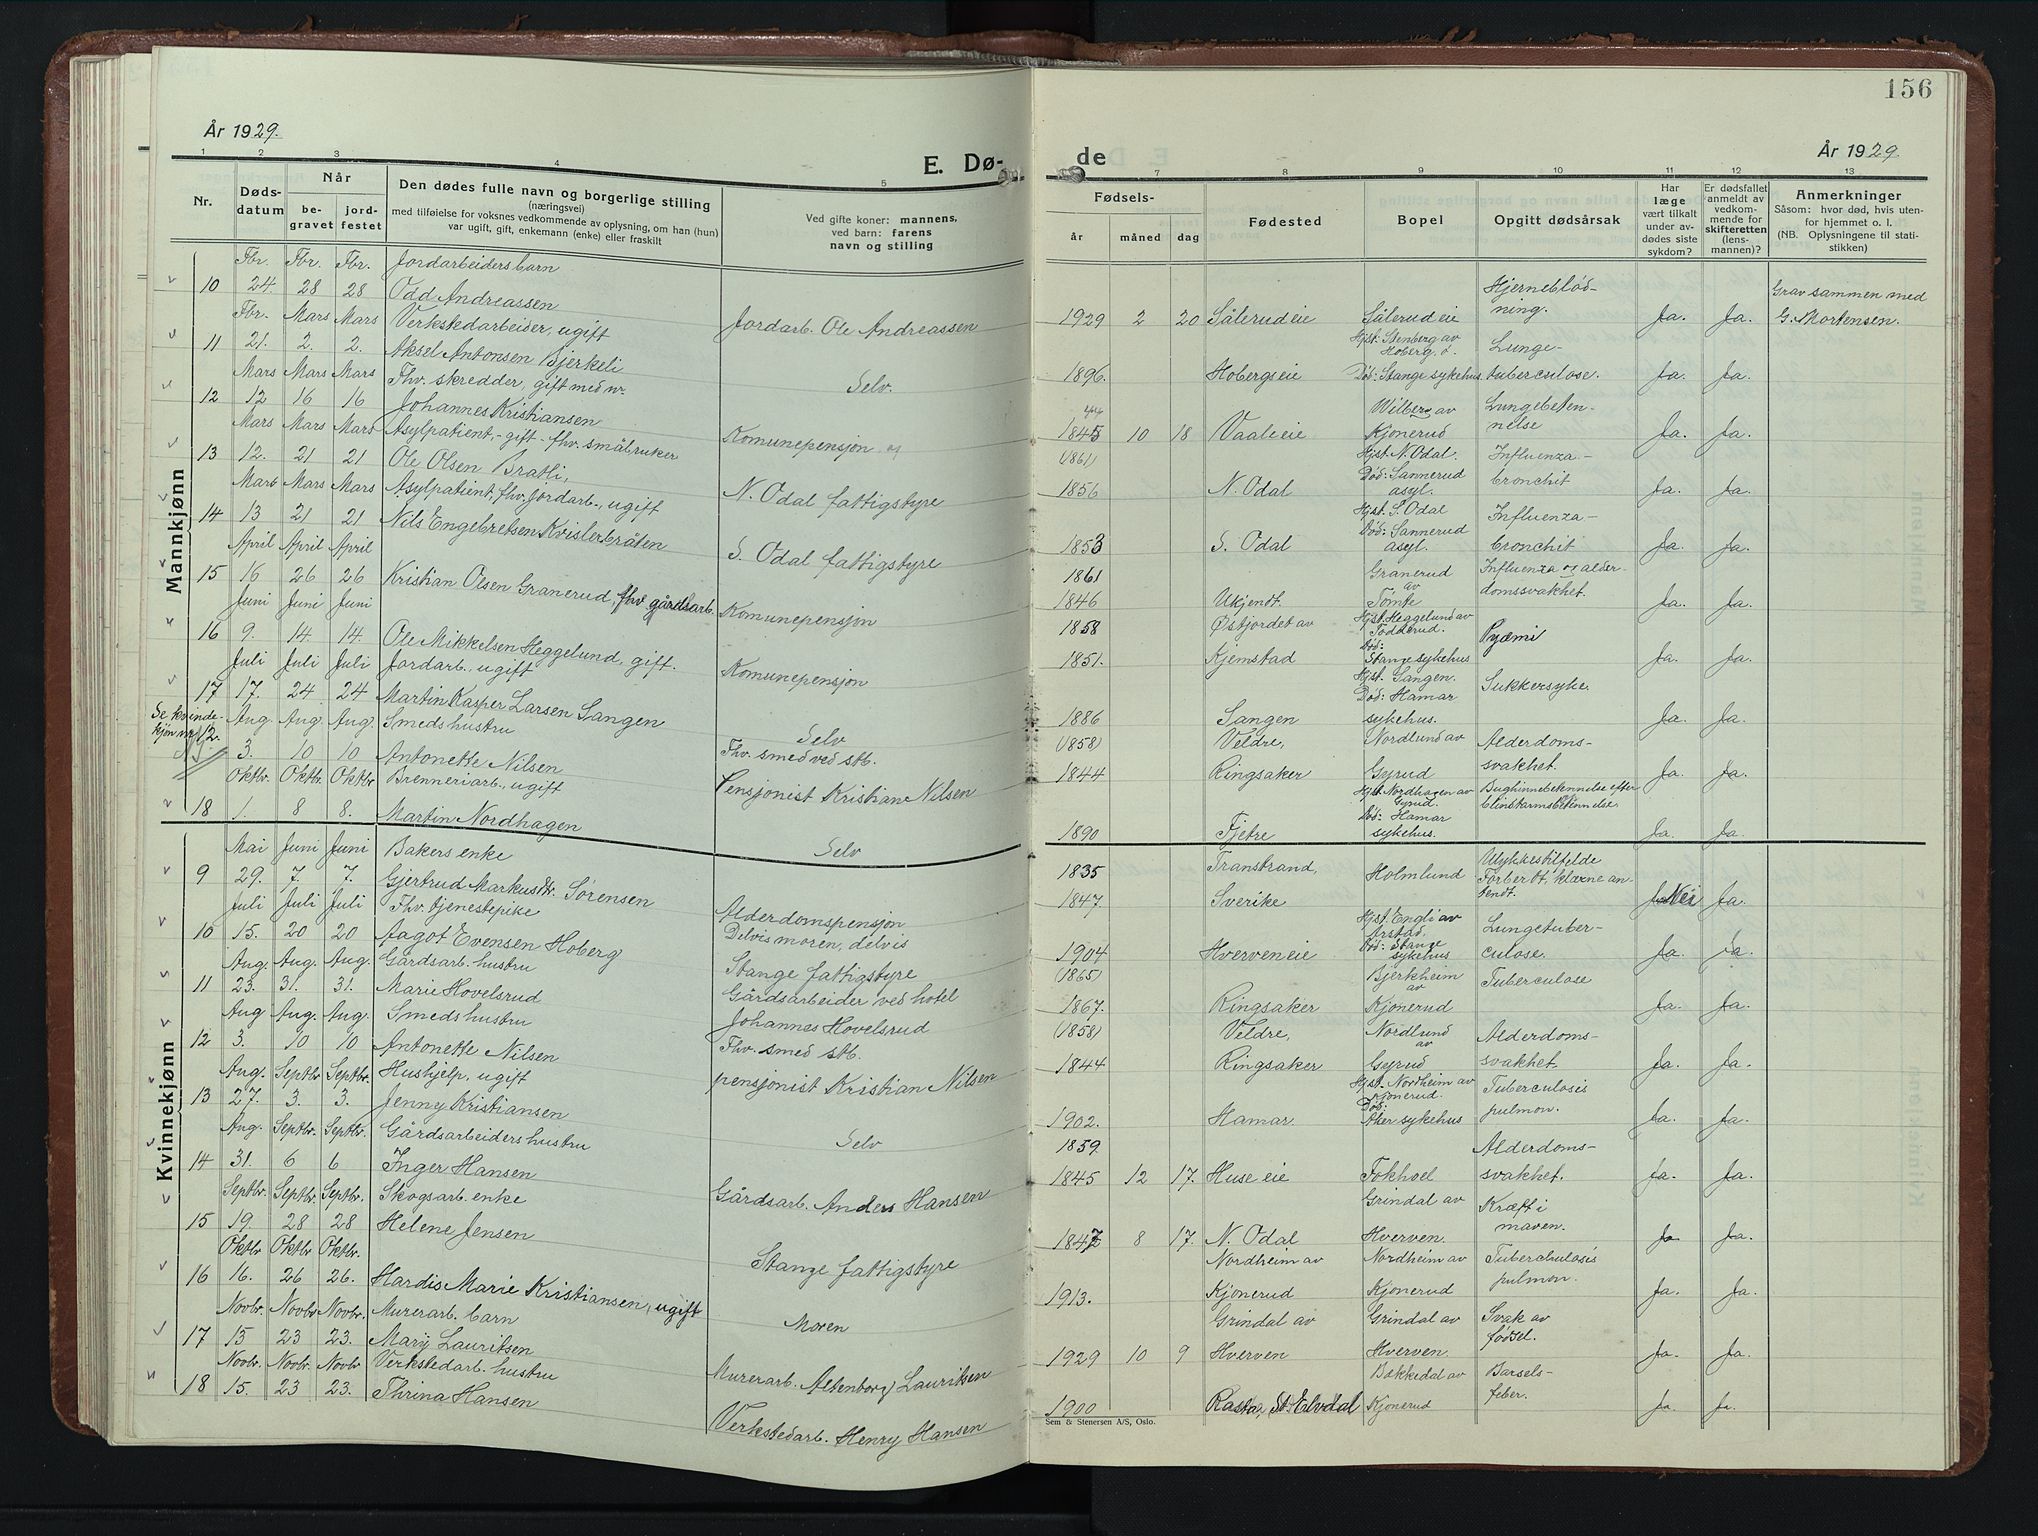 156
År 1929.
E. Dø-
de
År 1929.
1 2 3 4 5 7 8 9 10 11 12 13
Nr.
Døds-
datum
Når
be-
gravet
jord-
festet
Den dødes fulle navn og borgerlige stilling
(næringsvei)
med tilføielse for voksnes vedkommende av oplysning, om han (hun)
var ugift, gift, enkemann (enke) eller fraskilt
Ved gifte koner: mannens,
ved barn: farens
navn og stilling
Fødsels-
år måned dag
Fødested
Bopel
Opgitt dødsårsak
Har
læge
vært tilkalt
under av-
dødes siste
sykdom?
Er dødsfallet
anmeldt av
vedkom-
mende for
skifteretten
(lens-
mannen)?
Anmerkninger
Såsom: hvor død, hvis uten-
for hjemmet o. l.
(NB. Oplysningene til stati-
stikken)
Mannkjønn
Fbr. Fbr. Fbr. Jordarbeiders barn
10 24. 28 28 Odd Andreassen
Jordarb. Ole Andreassen
1929 2 20 Sålerud eie Sålerud eie
Hjerneblød-
ning.
Ja. Ja.
Grav sammen med
G. Mortensen.
Fbr. Mars Mars Verkstedarbeider, ugift
11 21. 2. 2. Aksel Antonsen Bjerkeli
Selv.
1896. Hobergseie
Hjst: Stenberg av
Hoberg. ö.
Død: Stange sykehus.
Lunge-
tuberculose.
Ja. Ja.
Mars Mars Mars Fhv. skredder, gift med nr.
12 12 16 16 Johannes Kristiansen
Komunepensjon
44
1845 10 18 Vaali eie
Wilberg av
Kjonerud
Lungebeten-
nelse
Ja. Ja.
Mars Mars Mars Asylpatient, - gift - fhv. småbruker
13 12. 21 21 Ole Olsen Bratli,
N. Odal fattigstyre
(1861)
1856 N. Odal
Hjst. N. Odal.
Død: Sannerud
asyl.
Influenza-
bronchit
Ja. Ja.
Mars Mars Mars Asylpatient, fhv. jordarb., ugift
14 13 21 21 Nils Engebretsen Kvislerbråten
S. Odal fattigstyre
1853 S. Odal
Hjst. S. Odal
Død: Sannerud
asyl.
Influenza-
bronchit
Ja. Ja.
April April April
15 16 26 26 Kristian Olsen Granerud, fhv gårdsarb.
Komunepensjon
1861
1846 Ukjendt.
Granerud
av
Tomte
Influenza og alder-
domssvakhet.
Ja. Ja.
Juni Juni Juni
16 9. 14. 14. Ole Mikkelsen Heggelund, gift.
Komunepensjon
1858 Østjordet av
1851. Kjemstad
Hjst. Heggelund av
Todderud.
Død:
Stange sykehus
Pyæmi
Ja. Ja.
Juli Juli Juli Jordarb., ugift
17 17. 24 24 Martin Kasper Larsen Sangen
Selv
1886 Sangen
Hjst. Sangen.
Død: Hamar
sykehus.
Sukkersyke.
Ja. Ja.
Se kvinde-
kjøn nr 12.
Aug. Aug. Aug. Smeds hustru
3. 10 10 Antonette Nilsen
Fhv. smed ved stb.
Pensjonist Kristian Nilsen
(1858) Veldre,
1844 Ringsaker
Nordlund av
Gyrud
Alderdoms-
svakhet.
Ja. Ja.
Oktbr. Oktbr. Oktbr. Brenneriarb., ugift
18 1. 8 8. Martin Nordhagen
Selv
1890 Fjetre
Hjst. Nordhagen av
Gyrud.
Død: Hamar
sykehus.
Bughinnebetennelse efter
blindtarmsbetennelse.
Ja. Ja.
Kvinnekjønn
Mai Juni Juni Bakers enke
9 29. 7. 7. Gjertrud Markusdtr. Sørensen
Alderdomspensjon
1835 Transtrand,
1847. Sverike
Holmlund
Ulykkestilfelde
Forber Ot, klærne an-
tendt.
Nei Ja.
Juli Juli Juli Fhv. tjenestepike
10 15. 20 20 Aagot Evensen Hoberg
Delvis moren, delvis
Stange fattigstyre
1904 Hverven eie
Hjst. Engli av
Arstad.
Død: Stange
sykehus
Lungetuber-
culose.
Ja. Ja.
Aug. Aug. Aug. Gårdsarb. hustru
11 23. 31. 31. Marie Hovelsrud
Gårdsarbeider ved hotel
Johannes Hovelsrud
(1865)
1867. Ringsaker
Bjerkheim
av
Kjonerud
Tuberculose
Ja. Ja.
Aug Aug. Aug. Smeds hustru
12 3. 10 10 Antonette Nilsen
Fhv. smed stb.
pensjonist Kristian Nilsen
(1858) Veldre,
1844 Ringsaker
Nordlund
av
Gyrud
Alderdoms-
svakhet.
Ja. Ja.
Aug. Septbr Septbr. Hushjelp, ugift
13 27. 3. 3. Jenny Kristiansen
Selv
1902. Hamar.
Hjst. Nordheim av
Kjonerud.
Død:
sykehus
Tuberculosis
pulmon.
Ja. Ja.
Aug. Septbr. Septbr. Gårdsarbeiders hustru
14 31. 6 6 Inger Hansen
Gårdsarb. Anders Hansen
1859.
1845 12 17. Huse eie Fokhoel
Alderdoms-
svakhet.
Ja. Ja.
Septbr. Septbr. Septbr. Skogsarb. enke
15 19. 28 28 Helene Jensen
Stange fattigstyre
1847 8 17. N. Odal
Grindal av
Hverven.
Kræft i
maven.
Ja Ja.
Oktbr Oktbr Oktbr.
16 16. 26 26. Hardis Marie Kristiansen, ugift
Moren
1913. Nordheim av
Kjonerud
Nordheim av
Kjonerud
Tuberchulosis
pulmon.
Ja. Ja.
Novbr. Novbr Novbr. Murerarb. barn
17 15 23 23. Mary Lauritsen
Murerarb. Altenborg Lauritsen
1929 10 9 Grindal av
Hverven
Grindal av
Hverven.
Svak av
fødsel.
Ja. Ja.
Novbr. Novbr. Novbr. Verkstedarb. hustru
18 15. 23 23. Thrina Hansen
Verkstedarb. Henry Hansen
1900 Rasta, St. Elvdal
Bakkedal av
Kjonerud
Barsels-
feber.
Ja. Ja.
Sem & Stenersen A/S, Oslo.